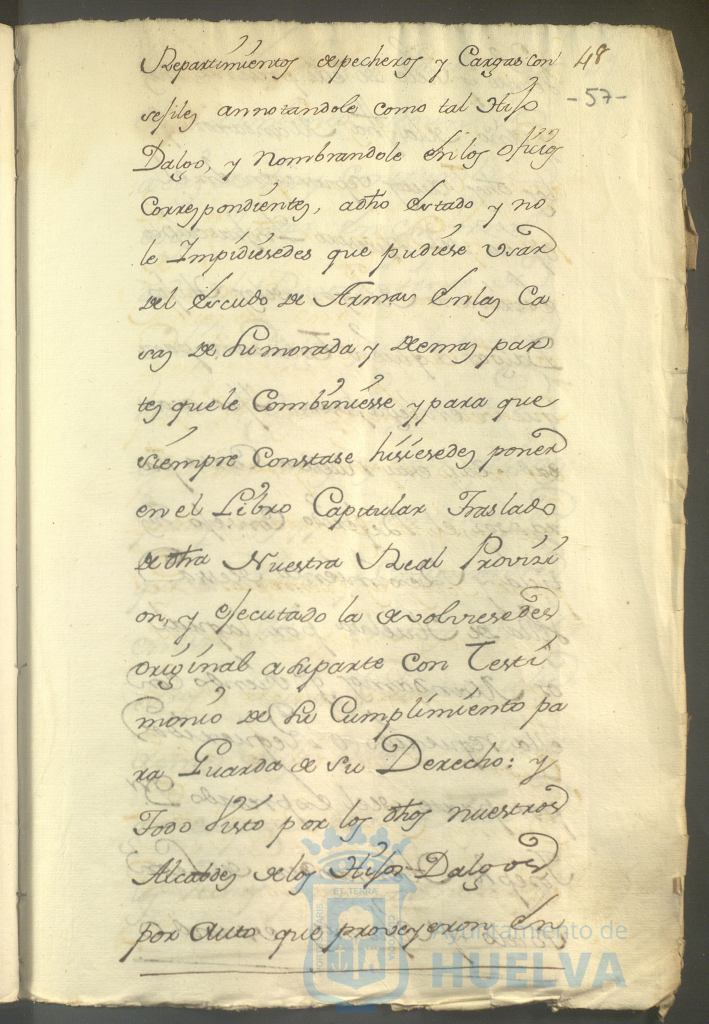 Repartimientos de pecheros y Cargas con 48
sejiles annotandole como tal Hijo -57-
Dalgo, y nombrandole en los oficios
Correspondientes, a dho estado y no
le Impidiesedes que pudiese Vsar
del escudo de Armas en las Ca
sas de su morada y demas par
tes que le Combiniesse y para que
siempre Constase hisiesedes poner
en el Libro Capitular Traslado
de dha Nuestra Real Provizi
on, y ejecutado la devolviesedes
original a su parte Con Testi
monio de su Cumplimiento pa
ra Guarda de su Derecho: y
Todo Visto por los dhos nuestros
Alcaldes de los Hijos-Dalgo
por Auto que proveyeron en
Ayuntamiento de
HUELVA